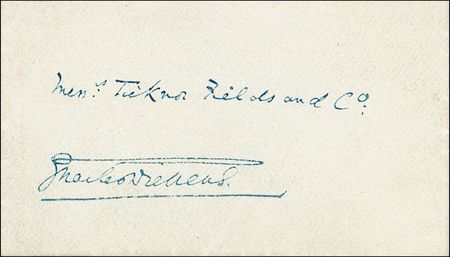 Mess.rs Ticknor Fields and Co.
Charles Dickens.